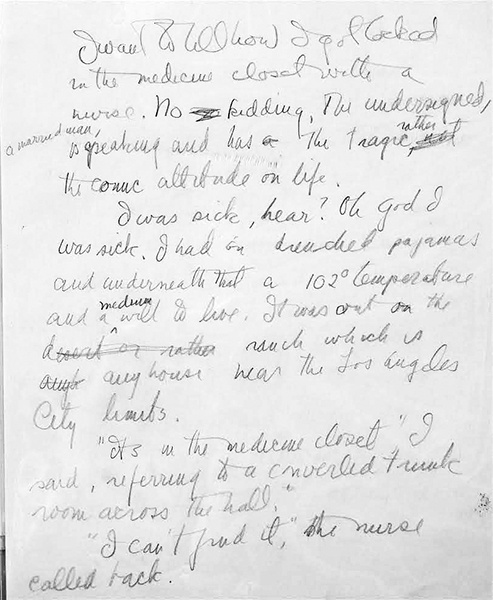 I want to tell how I got locked
in the medicine closet with a
nurse. No kidding, The undersigned,
a married man,
is speaking and has the tragic, rather
the comic attitude on life.
I was sick, hear? Oh god I
was sick. I had on drenched pajamas
and underneath that a 102° temperature
and a medium will to live. It was out on the
desert or rather ranch which is
any house near the Los Angeles
City limits.
"It's in the medicine closet" I
said, referring to a converted trunk
room across the hall."
"I can't find it," the nurse
called back.